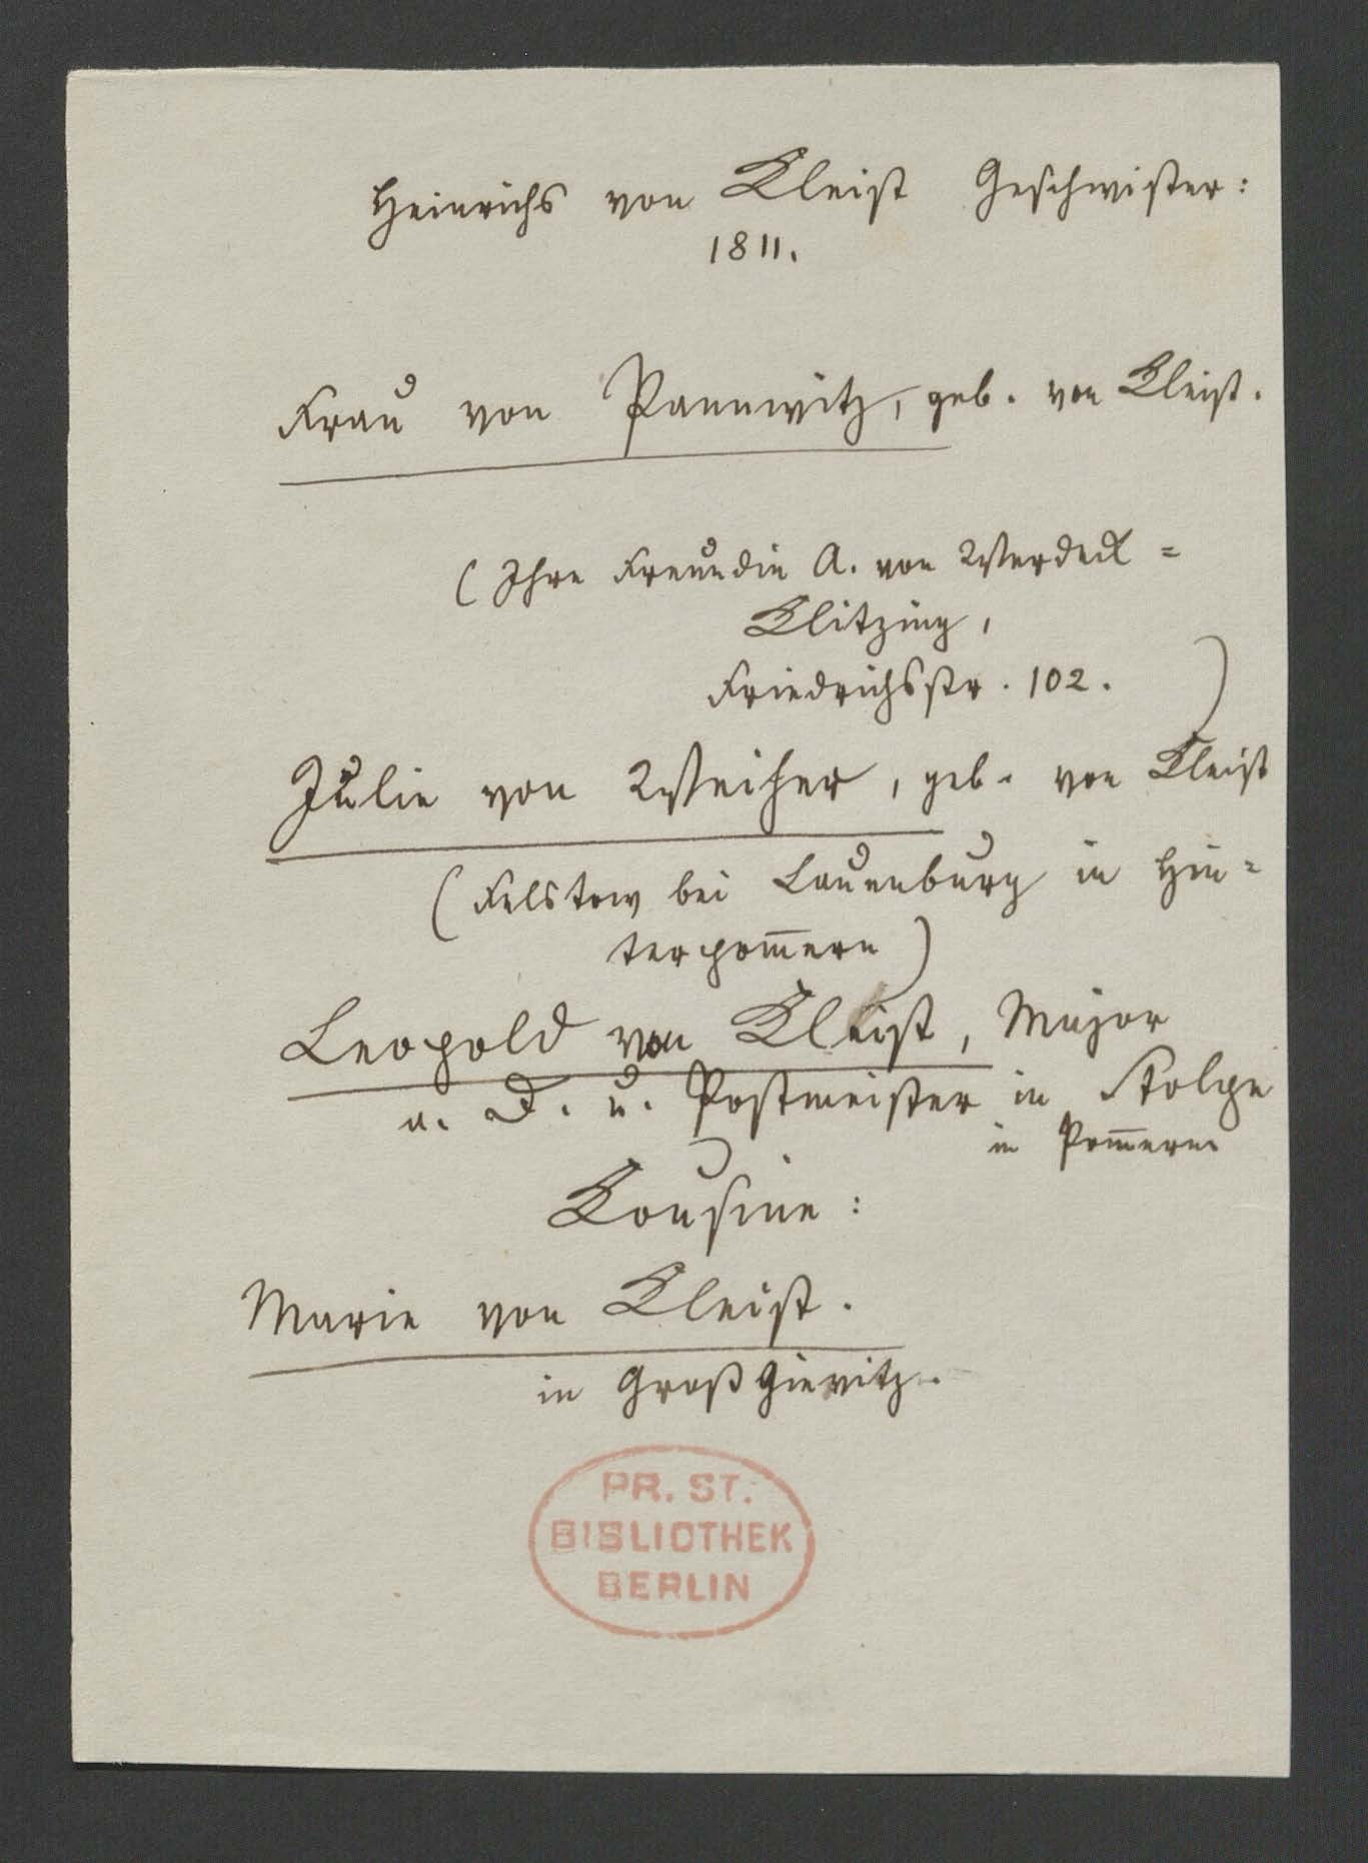 Heinrichs von Kleist Geschwister:
1811.
Frau von Pannwitz, geb. von Kleist.
(Ihre Freundin A. von Werdeck-
Klitzing,
Friedrichsstr. 102. )
Julie von Weiher, geb. von Kleist
(Felstow bei Lauenburg in Hin-
terpom̅ern)
Leopold von Kleist, Major
a. D. u. Postmeister in Stolpe
in Pom̅ern
Kousine:
Marie von Kleist.
in Groß Gievitz.
PR. ST.
BIBLIOTHEK
BERLIN